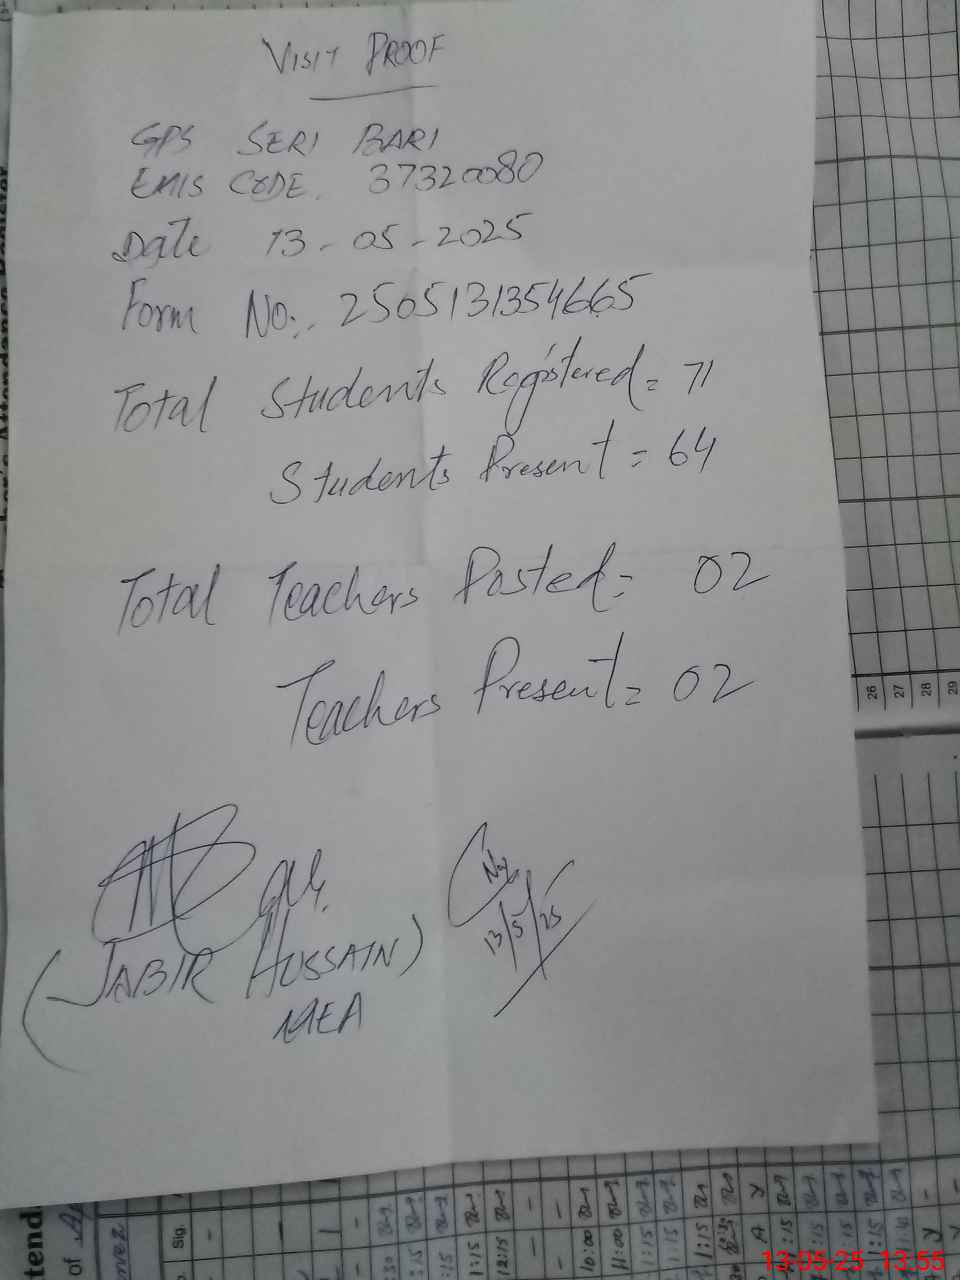 VISIT PROOF
GPS SERI BARI
EMIS CODE. 37320080
Date 13-05-2025
Form No:. 2505131354665
Total Students Registered = 71
Students Present = 64
Total Teachers Posted = 02
Teachers Present = 02
13/5/25
(JABIR HUSSAIN)
MEA
26
27
28
29
tend
of
Sig.
1:15
12:15
10:00
11:00
1:15
1:15
1:15
13-05-25 13:55